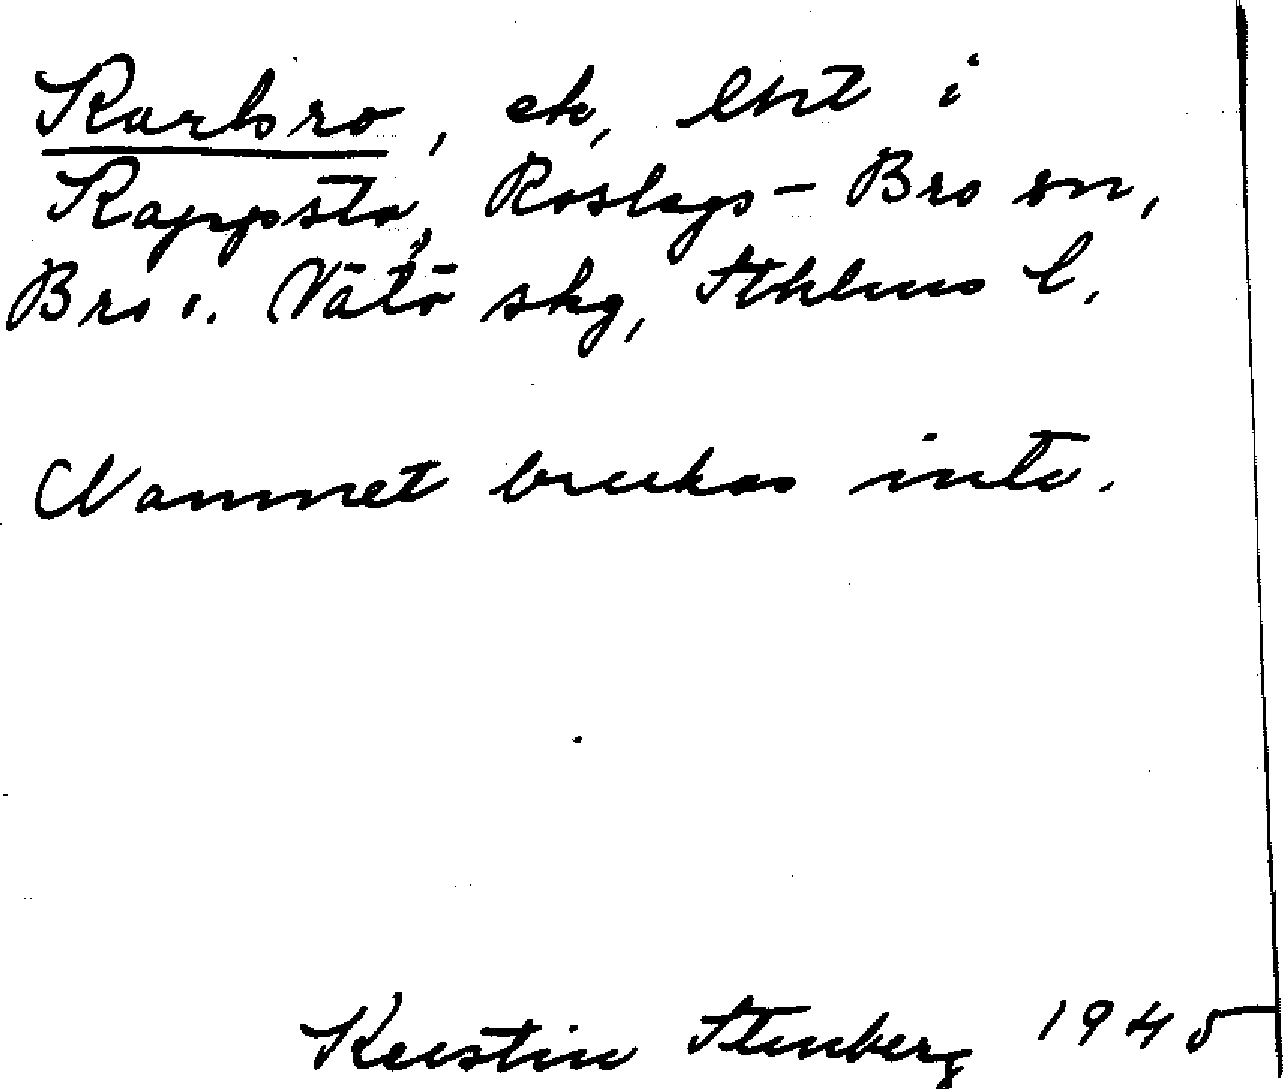 Karlsro, ek, lht i
Kappsta, Roslags-Bro sn,
Bro o. Vätö skg, Sthlms l.
Namnet brukas inte.
Kerstin Stenberg 1945